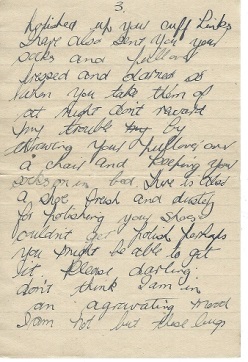 3.
polished up your cuff links
I have also sent you your
socks and pullover
pressed and darned so
when you take them of
at night don't reward
my trouble my by
throwing your pullover over
a chair and keeping your
socks on in bed. There is also
a shoe brush and duster
for polishing your shoes
couldn't get polish perhaps
you might be able to get
it. Please darling
don't think I am in
an agrovating mood
I am not but these